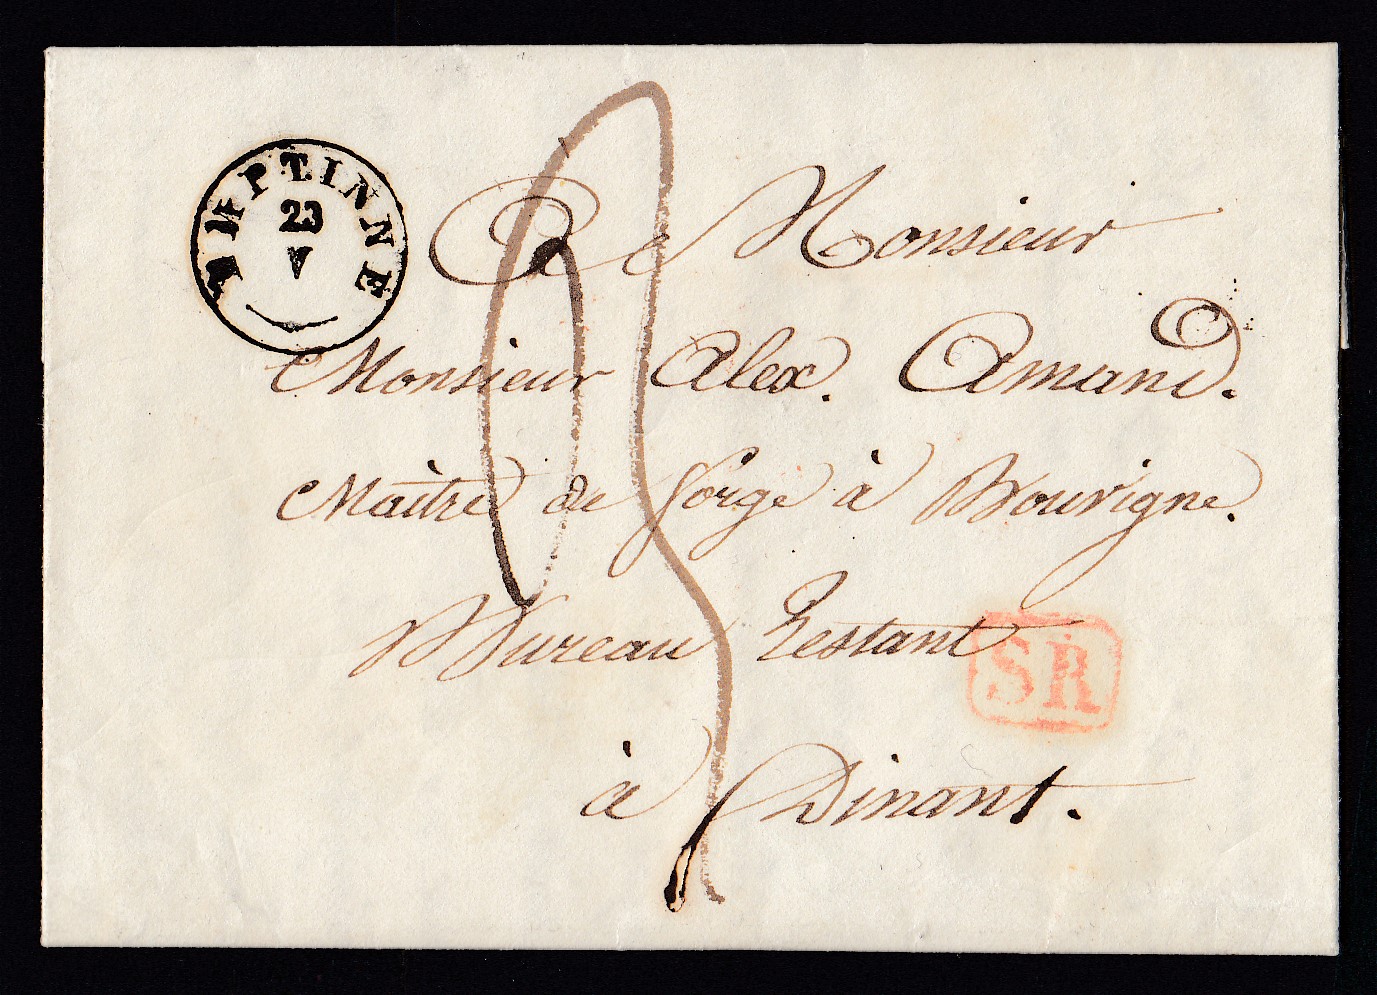 EMPTINNE
23
V
A Monsieur
Monsieur Alex. Amand.
Maître de forge à Bouvigne.
Bureau restant
SR
à Dinant.